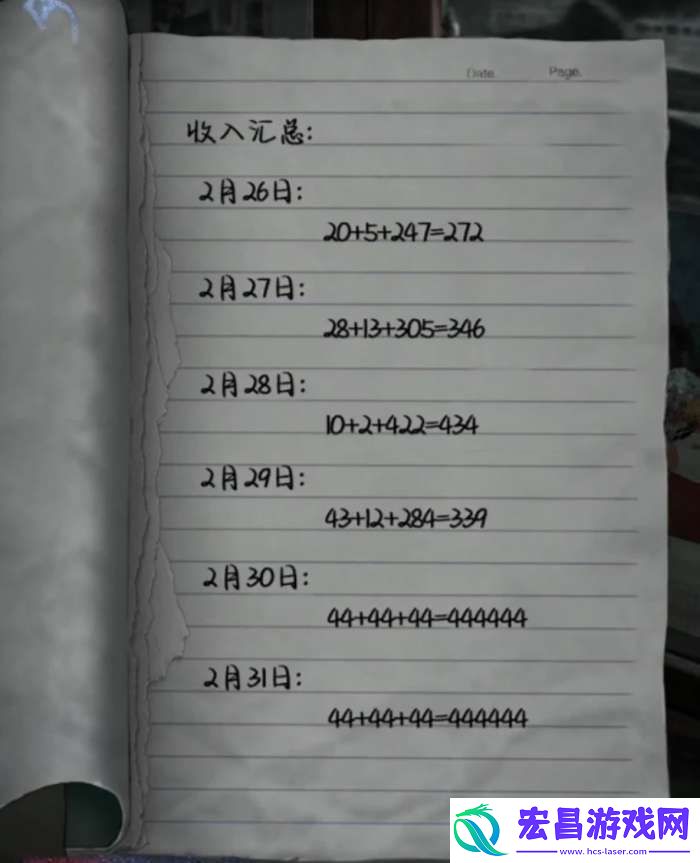 Date.
Page.
收入汇总:
2月26日:
20+5+247=272
2月27日:
28+13+305=346
2月28日:
10+2+422=434
2月29日:
43+12+284=339
2月30日:
44+44+44=444444
2月31日:
44+44+44=444444
宏昌游戏网
www.hcs-laser.com